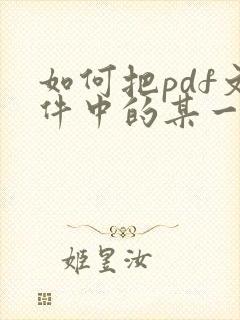 如何把pdf文
件中的某一
姬昱汝